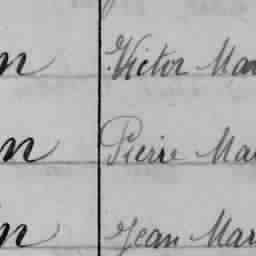 n Victor Mar
n Pierre Mar
n Jean Mar